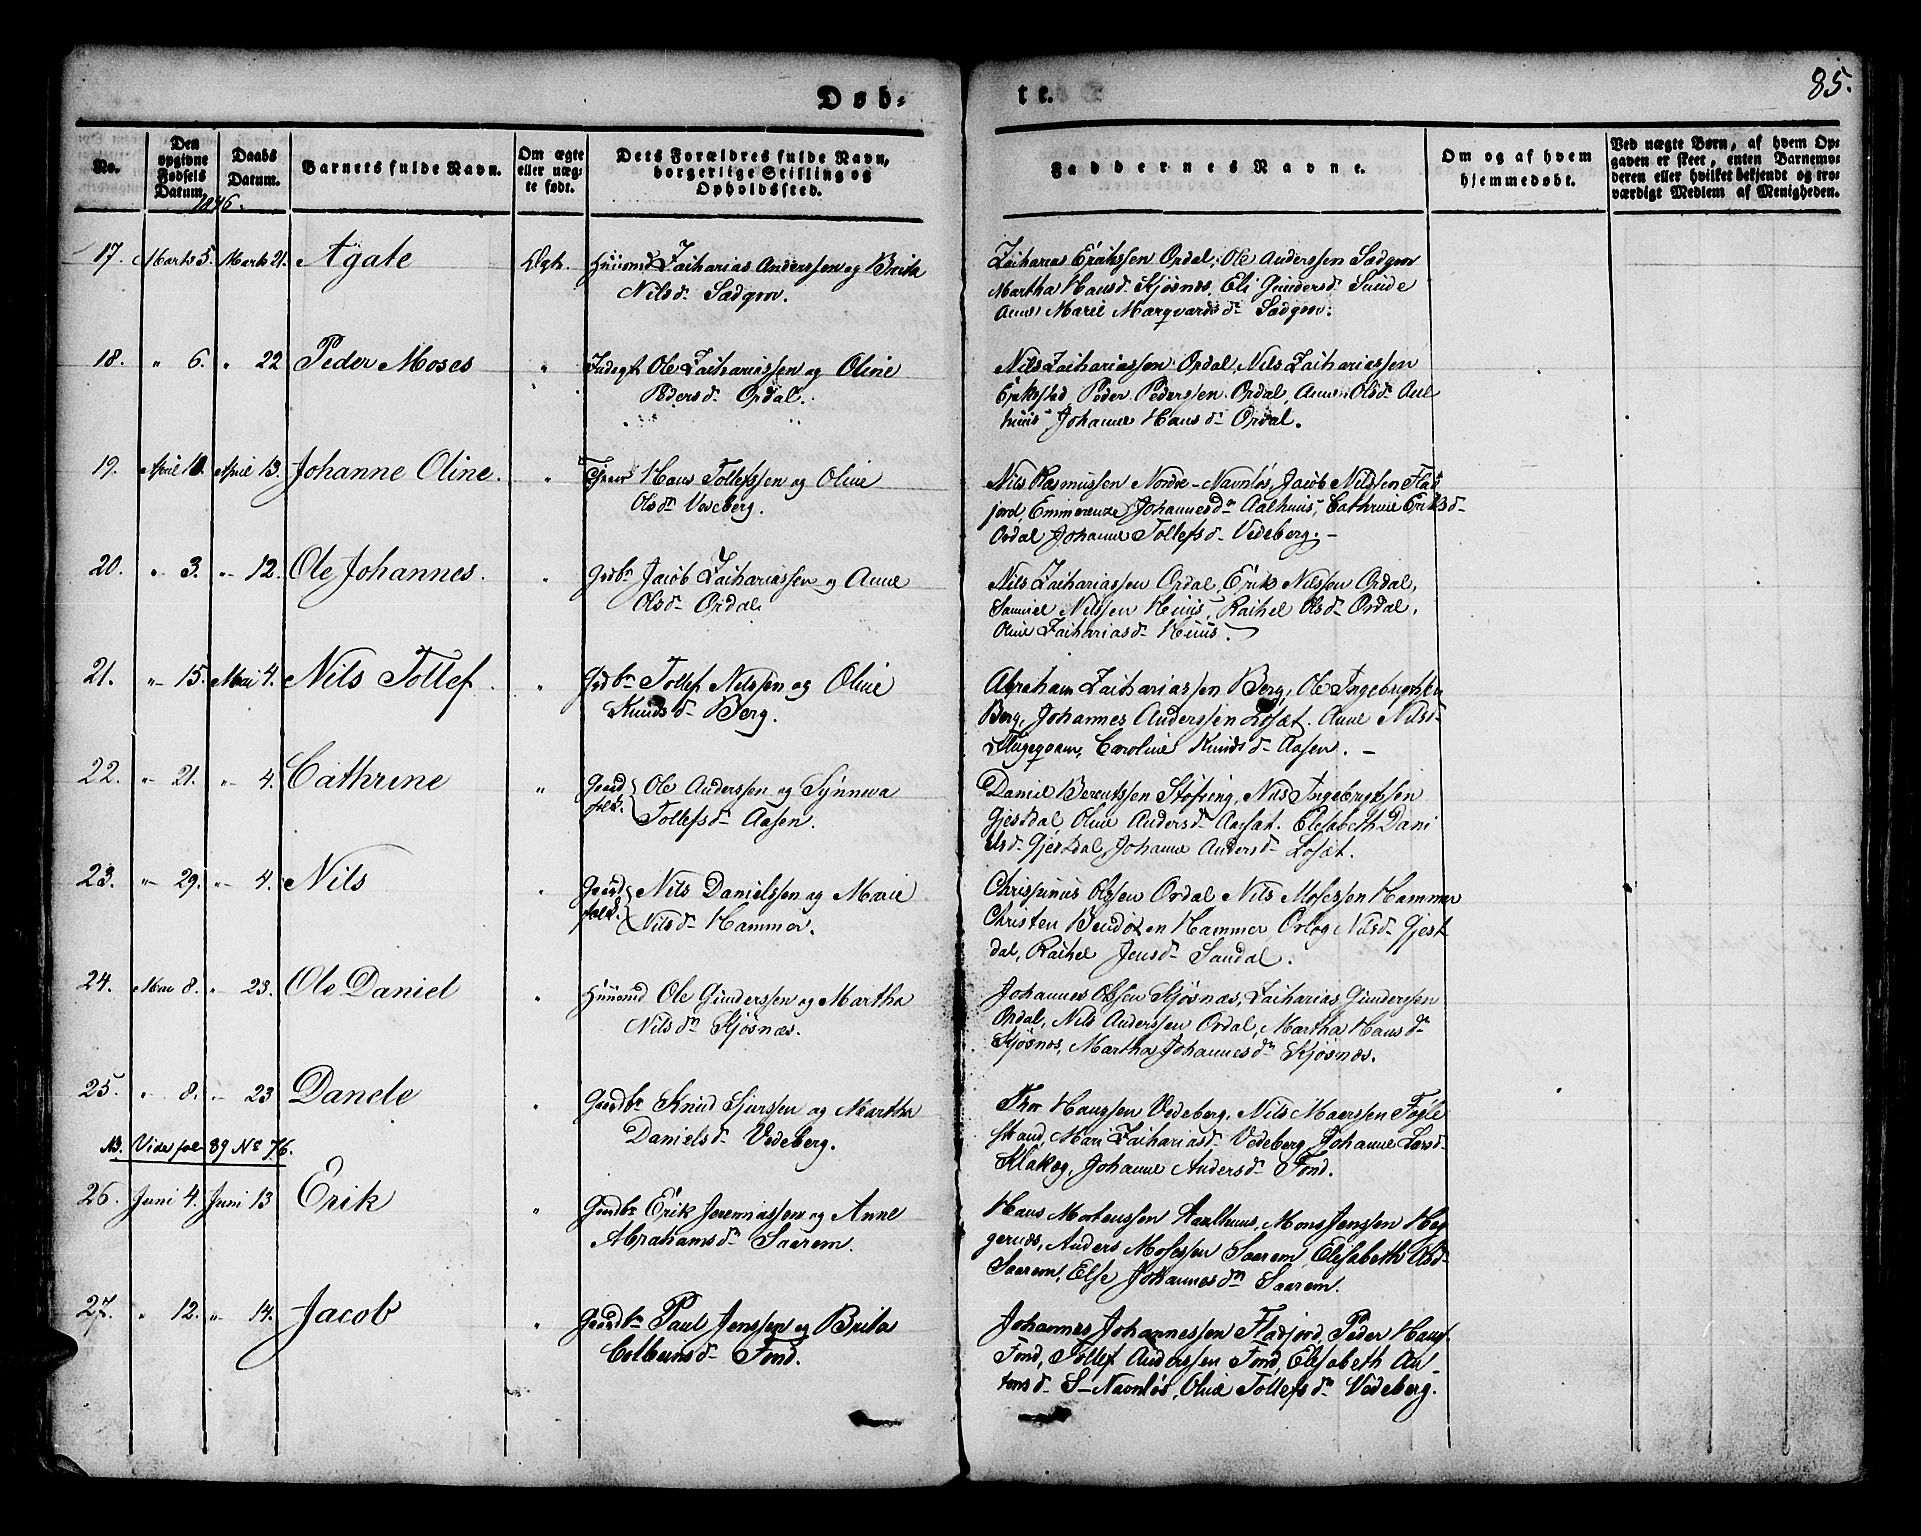 Døb-
te.
85.
No.
Den opgivne Fødsels Datum.
Daabs Datum.
Barnets fulde Navn.
Om ægte eller uægte født.
Dets Forældres fulde Navn, borgerlige Stilling og Opholdssted.
Faddernes Navne.
Om og af hvem hjemmedøbt.
Ved uægte Børn, af hvem Opgaven er skeet, enten Barnemoderen eller hvilket bekjendt og troværdigt Medlem af Menigheden.
1846.
17. Marts 5. Marts 21. Agate Ægte. Huusmd Zacharias Anderssen og Brita
Nilsdr Sædgrov.
Zacharias Erikssen Ordal, Ole Anderssen Sædgrov
Martha Hansdr Kjøsnæs, Eli Gundersdr Sunde
Anne Marie Marqvardsdr Sædgrov.
18. " 6. " 22 Peder Moses " Inderst Ole Zachariassen og Oline
Pedersdr Ordal.
Nils Zachariassen Ordal, Nils Zachariassen
Eikestad Peder Pederssen Ordal, Anne Olsdr Aal
huus Johanne Hansdr Ordal.
19. April 10. April 13. Johanne Oline. " Hans Tollefssen og Oline
Olsdr Vedeberg.
Nils Rasmussen Nordre-Navnløs, Jacob Nilssen Flad
jord, Emmerenze Johannesdr Aalhuus, Cathrine Eriksdr
Ordal Johanne Tollefsdr Vedeberg. -
20. " 3. " 12. Ole Johannes. " Grdbr Jacob Zachariassen og Anne
Olsdr Ordal.
Nils Zachariassen Ordal, Erik Nilssen Ordal,
Samuel Nilssen Huus, Rachel Olsdr Ordal,
Oline Zachariasdr Huus.
21. " 15. Mai 4. Nils Tollef. " Grdbr Tollef Nilssen og Oline
Knudsdr Berg.
Abraham Zachariassen Berg, Ole Ingebrigtsen
Berg, Johannes Anderssen Løsæt. Anne Nilsd-
Flugegvam, Caroline Knudsdr Aasen. -
22. " 21. " 4. Cathrine " Gaard
folk. Ole Anderssen og Synneva
Tollefsdr Aasen.
Daniel Berentssen Støfring, Nils Ingebrigtssen
Gjesdal Oline Andersdr Aasæt. Elisabeth Dani
elsdr Gjesdal, Johanne Andersdr Løsæt.
23. " 29. " 4. Nils " Gaard
folk. Nils Danielssen og Marie
Nilsdr Hammer.
Chrispinus Olssen Ordal Nils Mosessen Hammer
Christen Bendixen Hammer Orlog Nilsdr Gjest
dal, Rachel Jensdr Sandal.
24. Mai 8. " 23. Ole Daniel " Huusmd Ole Gunderssen og Martha
Nilsdr Kjøsnæs.
Johannes Olssen Kjøsnæs, Zacharias Gunderssen
Ordal, Nils Anderssen Ordal, Martha Hansdr
Kjøsnæs, Martha Johannesdr Kjøsnæs.
25. " 8. " 23 Danele " Gaardbr Knud Sjurssen og Martha
Danielsdr Vedeberg.
Thor Haugssen Vedeberg, Nils Maerssen Fogle
strand, Mari Zachariasdr Vedeberg, Johanne Larsd-
Klakeg, Johanne Andersdr Fond.
NB. Vide fol 89 No 76.
26. Juni 4. Juni 13 Erik " Gaardbr Erik Jeremiassen og Anne
Abrahamsdr Saarem.
Hans Mortenssen Aalhuus, Mons Jenssen Heg
gernæs, Anders Mosessen Saarem, Elisabeth Olsd-
Saarem, Else Johannesdr Saarem.
27. " 12. " 14. Jacob " Gaardbr Paul Jenssen og Brita
Colbeinsdr Fond.
Johannes Johannessen Fladjord, Peder Haugs
Fond, Tollef Anderssen Fond, Elisabeth An-
tonsdr S-Navnløs, Oline Tollefsdr Vedeberg.